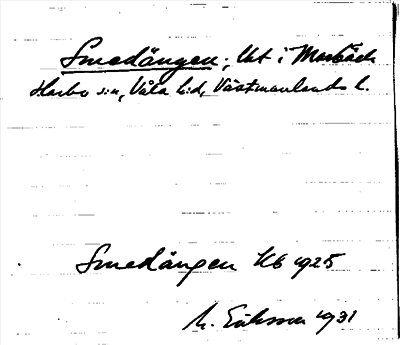 Smedängen; lht i Morbäck
Harbo s:n, Våla h:d, Västmanlands l.
Smedängen KB 1925
M. Eriksson 1931